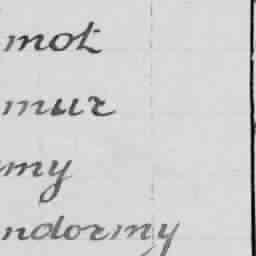 mot
mur
my
ndormy